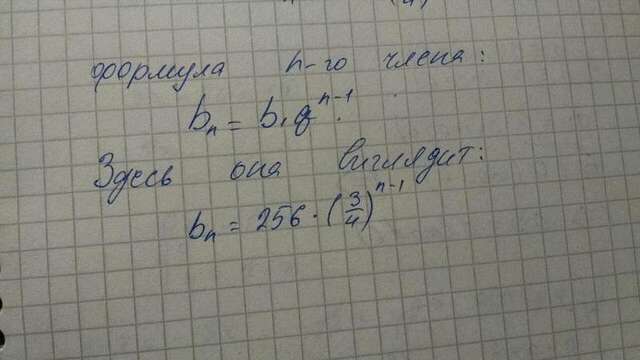 формула n-го члена:
bₙ = b₁qⁿ⁻¹.
Здесь она виглядит:
bₙ = 256 · (3/4)ⁿ⁻¹